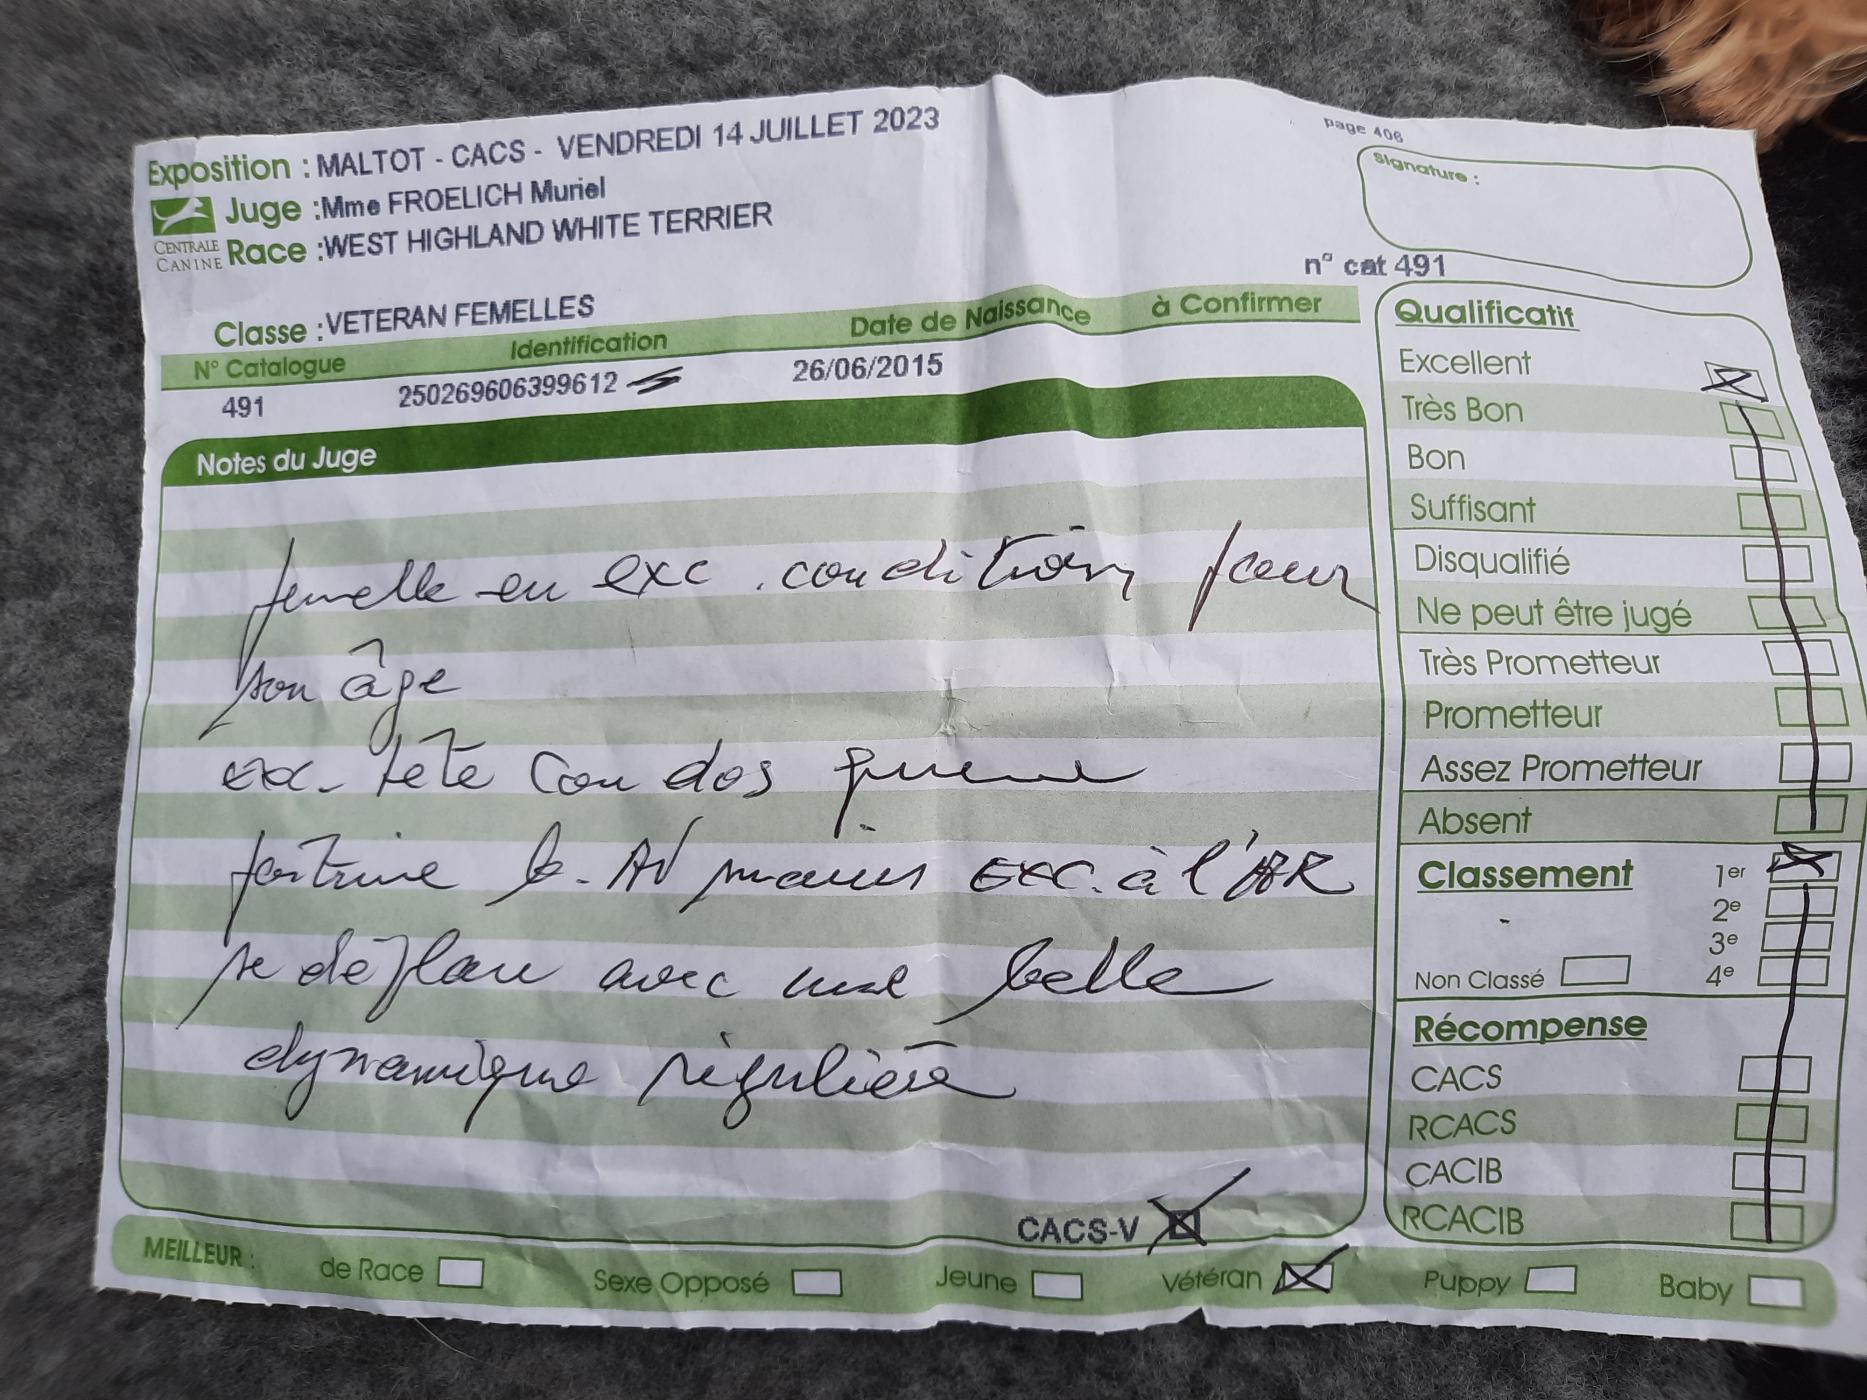 Exposition : MALTOT - CACS - VENDREDI 14 JUILLET 2023
page 406
signature :
Juge : Mme FROELICH Muriel
CENTRALE CANINE
Race : WEST HIGHLAND WHITE TERRIER
n° cat 491
Classe : VETERAN FEMELLES
N° Catalogue Identification Date de Naissance à Confirmer
491 250269606399612 26/06/2015
Notes du Juge
femelle en exc. condition pour
son âge
exc. tête cou dos queue
poitrine b. AV moins exc. à l'AR
se déplace avec une belle
dynamique régulière
CACS-V
MEILLEUR : de Race Sexe Opposé Jeune Vétéran Puppy Baby
Qualificatif
Excellent
Très Bon
Bon
Suffisant
Disqualifié
Ne peut être jugé
Très Prometteur
Prometteur
Assez Prometteur
Absent
Classement 1er
2e
3e
Non Classé 4e
Récompense
CACS
RCACS
CACIB
RCACIB